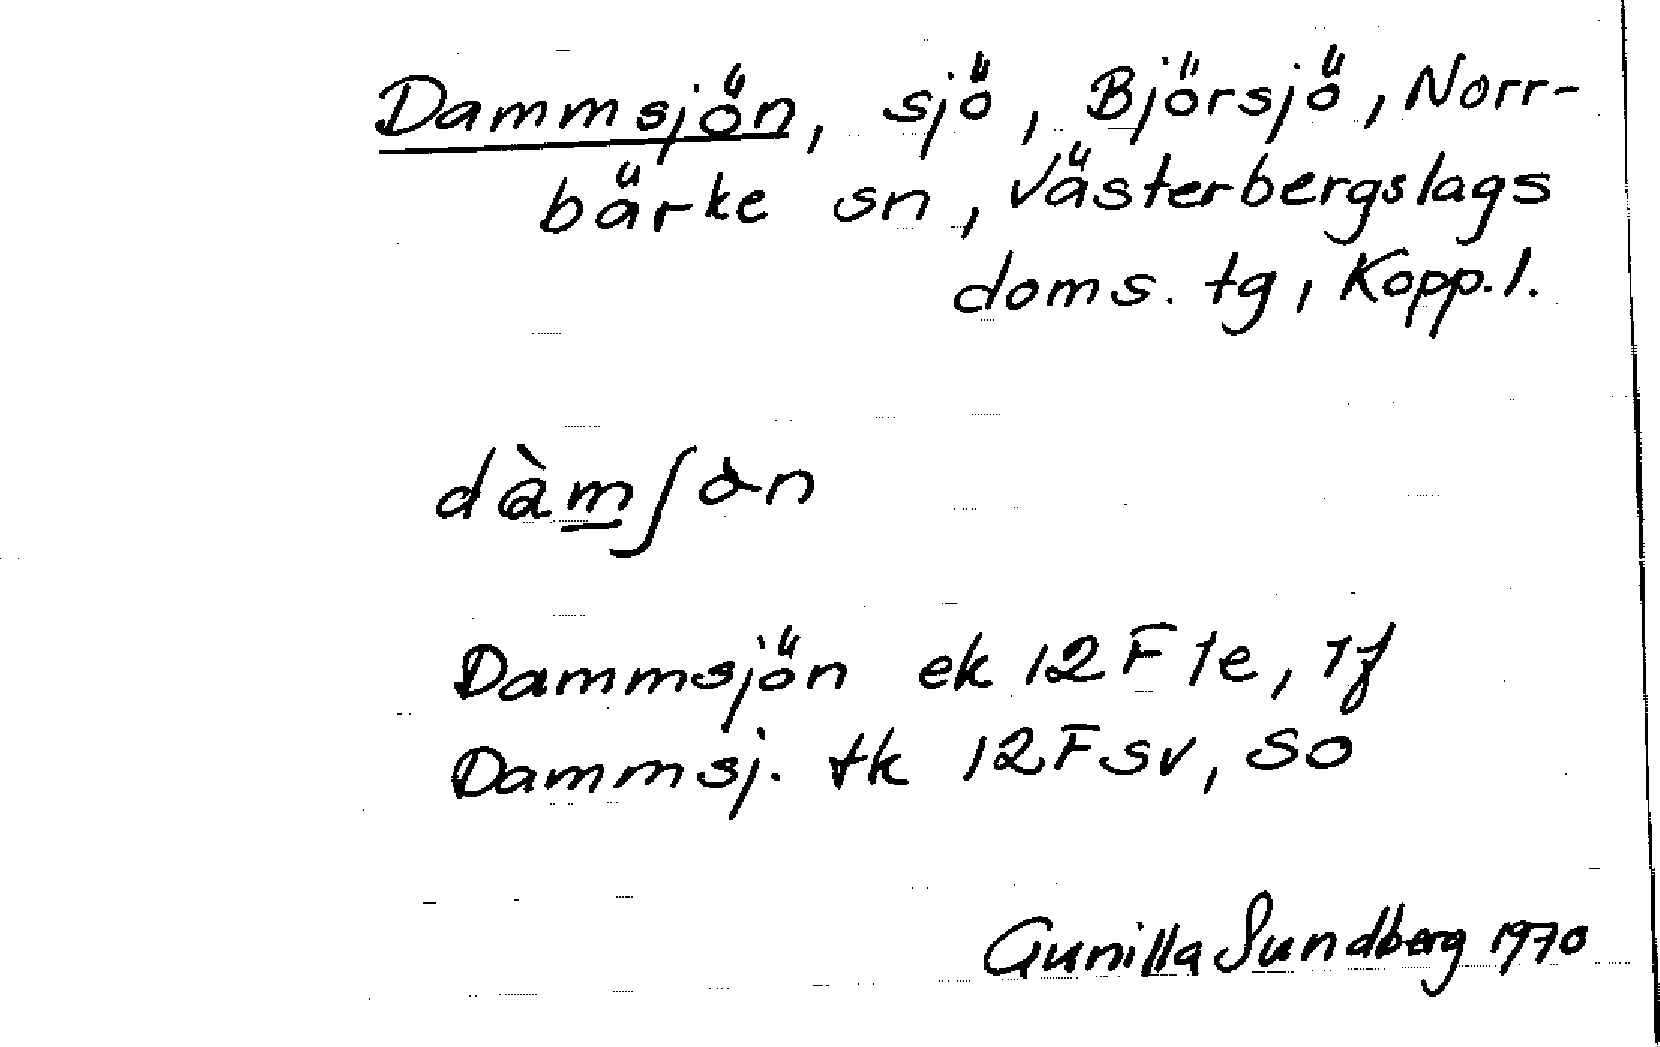 Dammsjön, sjö, Björsjö, Norr-
bärke sn, Västerbergslags
doms. tg, Kopp. l.
dàmʃɔ̀n
Dammsjön ek 12 F 1e, 1f
Dammsj. tk 12 F sv, so
Gunilla Sundberg 1970